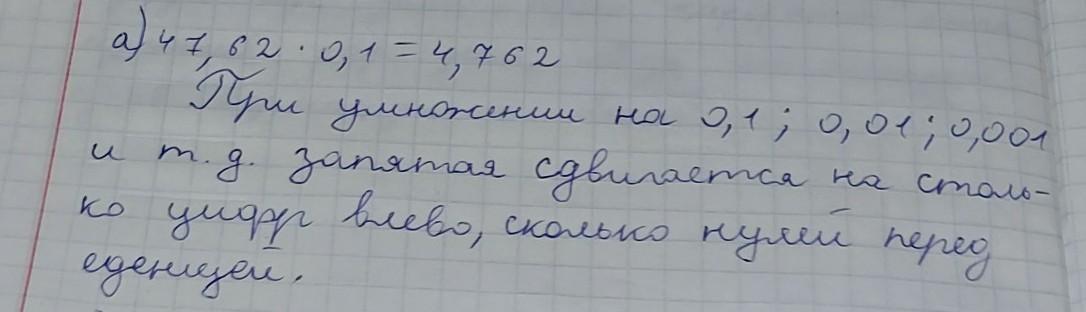 а) 47,62 · 0,1 = 4,762
При умножении на 0,1; 0,01; 0,001
и т.д. запятая сдвигается на столь-
ко цифр влево, сколько нулей перед
еденицей.